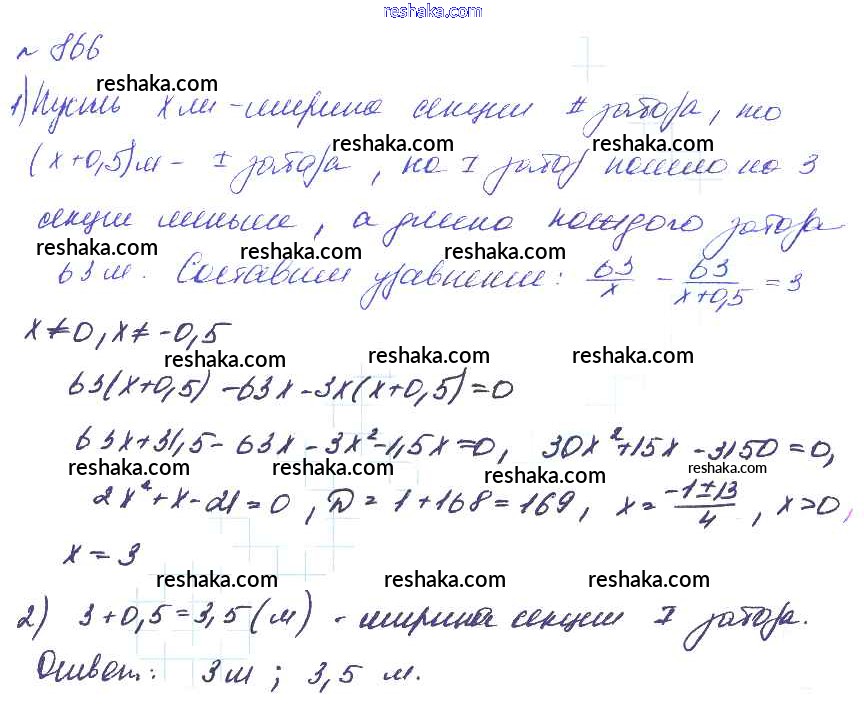 reshaka.com
№ 866
reshaka.com
1) Пусть x м - ширина секции II забора, то
reshaka.com reshaka.com
(x+0,5) м - I забора, на I забор пошло на 3
секции меньше, а длина каждого забора
reshaka.com reshaka.com reshaka.com
63 м. Составим уравнение: 63/x - 63/(x+0,5) = 3
x≠0, x≠-0,5
reshaka.com reshaka.com reshaka.com
63(x+0,5) -63x -3x(x+0,5)=0
63x+31,5 - 63x - 3x² -1,5x=0, 30x²+15x -3150=0,
reshaka.com reshaka.com reshaka.com reshaka.com
2x²+x-21=0, D=1+168=169, x=(-1±13)/4, x>0,
x=3
reshaka.com reshaka.com reshaka.com
2) 3+0,5=3,5 (м) - ширина секции I забора.
reshaka.com reshaka.com reshaka.com
Ответ: 3м; 3,5 м.